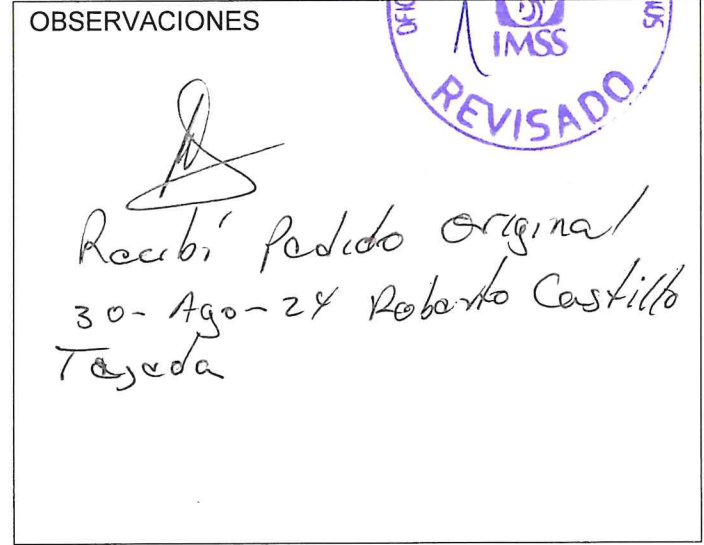 OBSERVACIONES
IMSS
REVISADO
Recibí Pedido original
30-Ago-24 Roberto Castillo
Tejeda